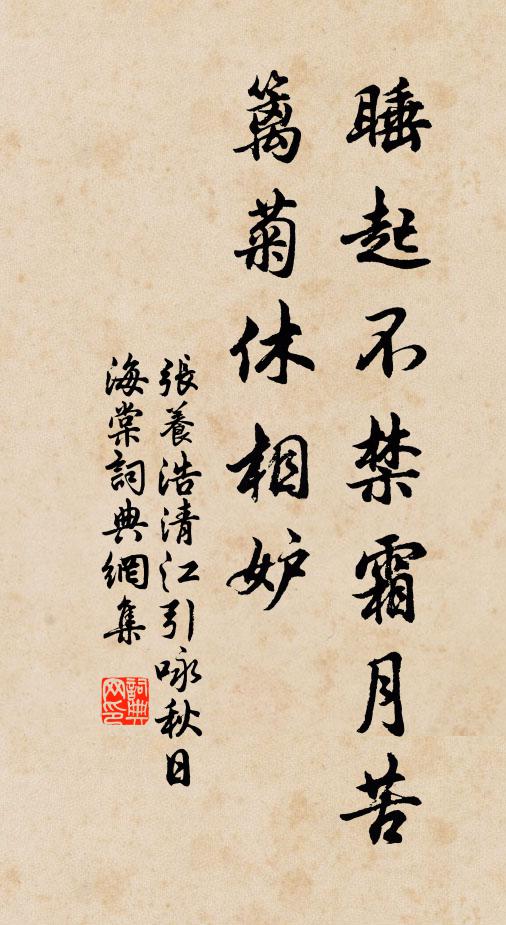 睡起不禁霜月苦
籬菊休相妒
張養浩清江引咏秋日
海棠詞典網集
詞典
网印